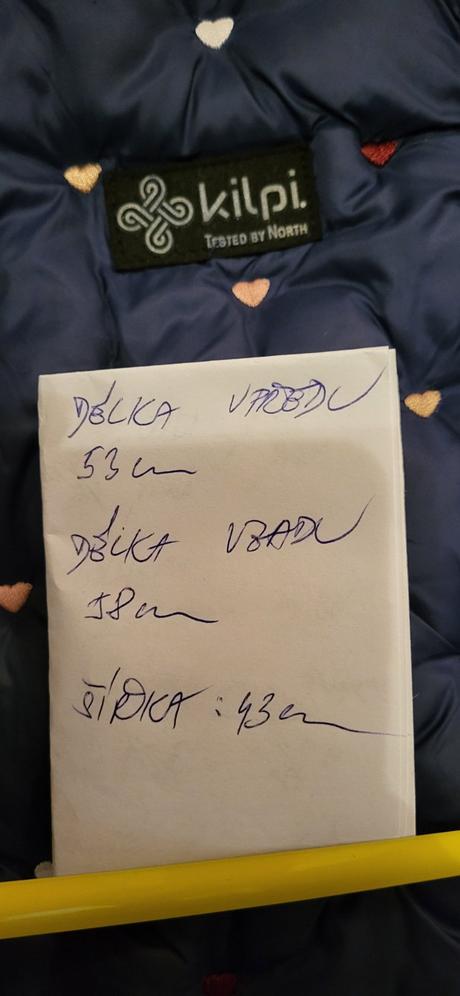 kilpi.
TESTED BY NORTH
DÉLKA VPŘEDU
53 cm
DÉLKA VZADU
58 cm
ŠÍŘKA : 43 cm